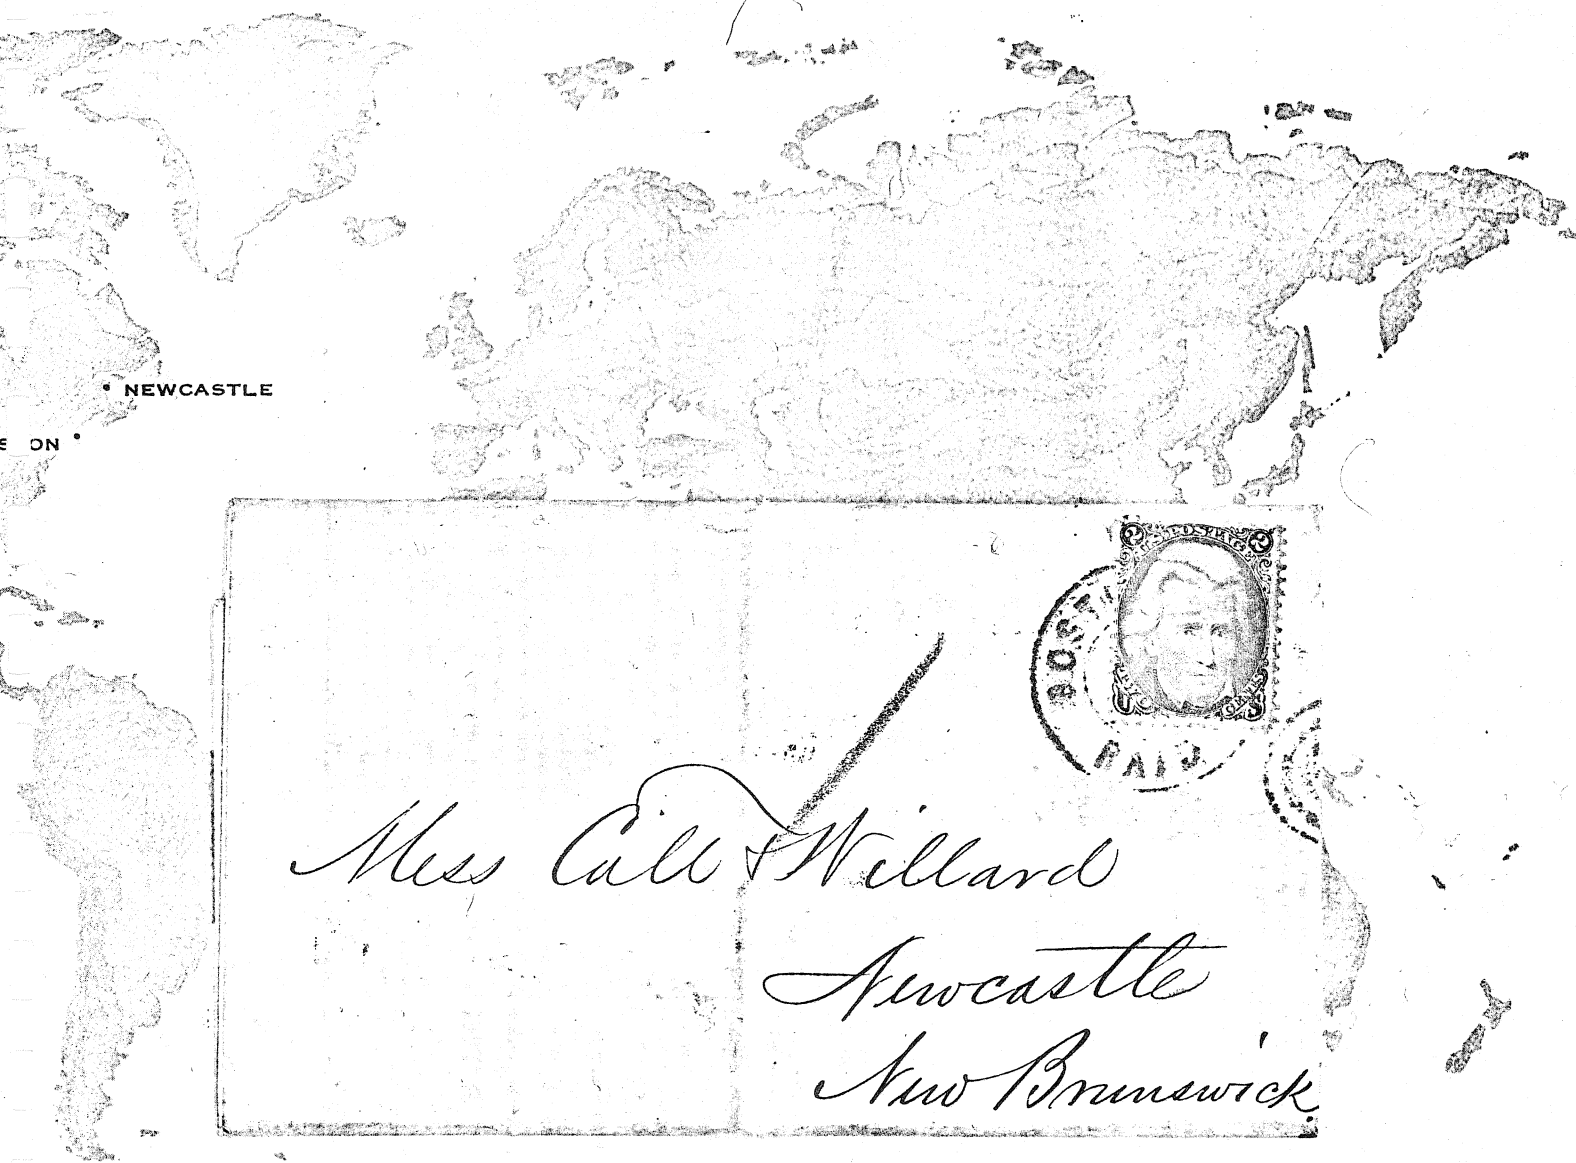 NEWCASTLE
ON
2 U.S. POSTAGE 2
BOST
PAID
Miss Call Willard
Newcastle
New Brunswick